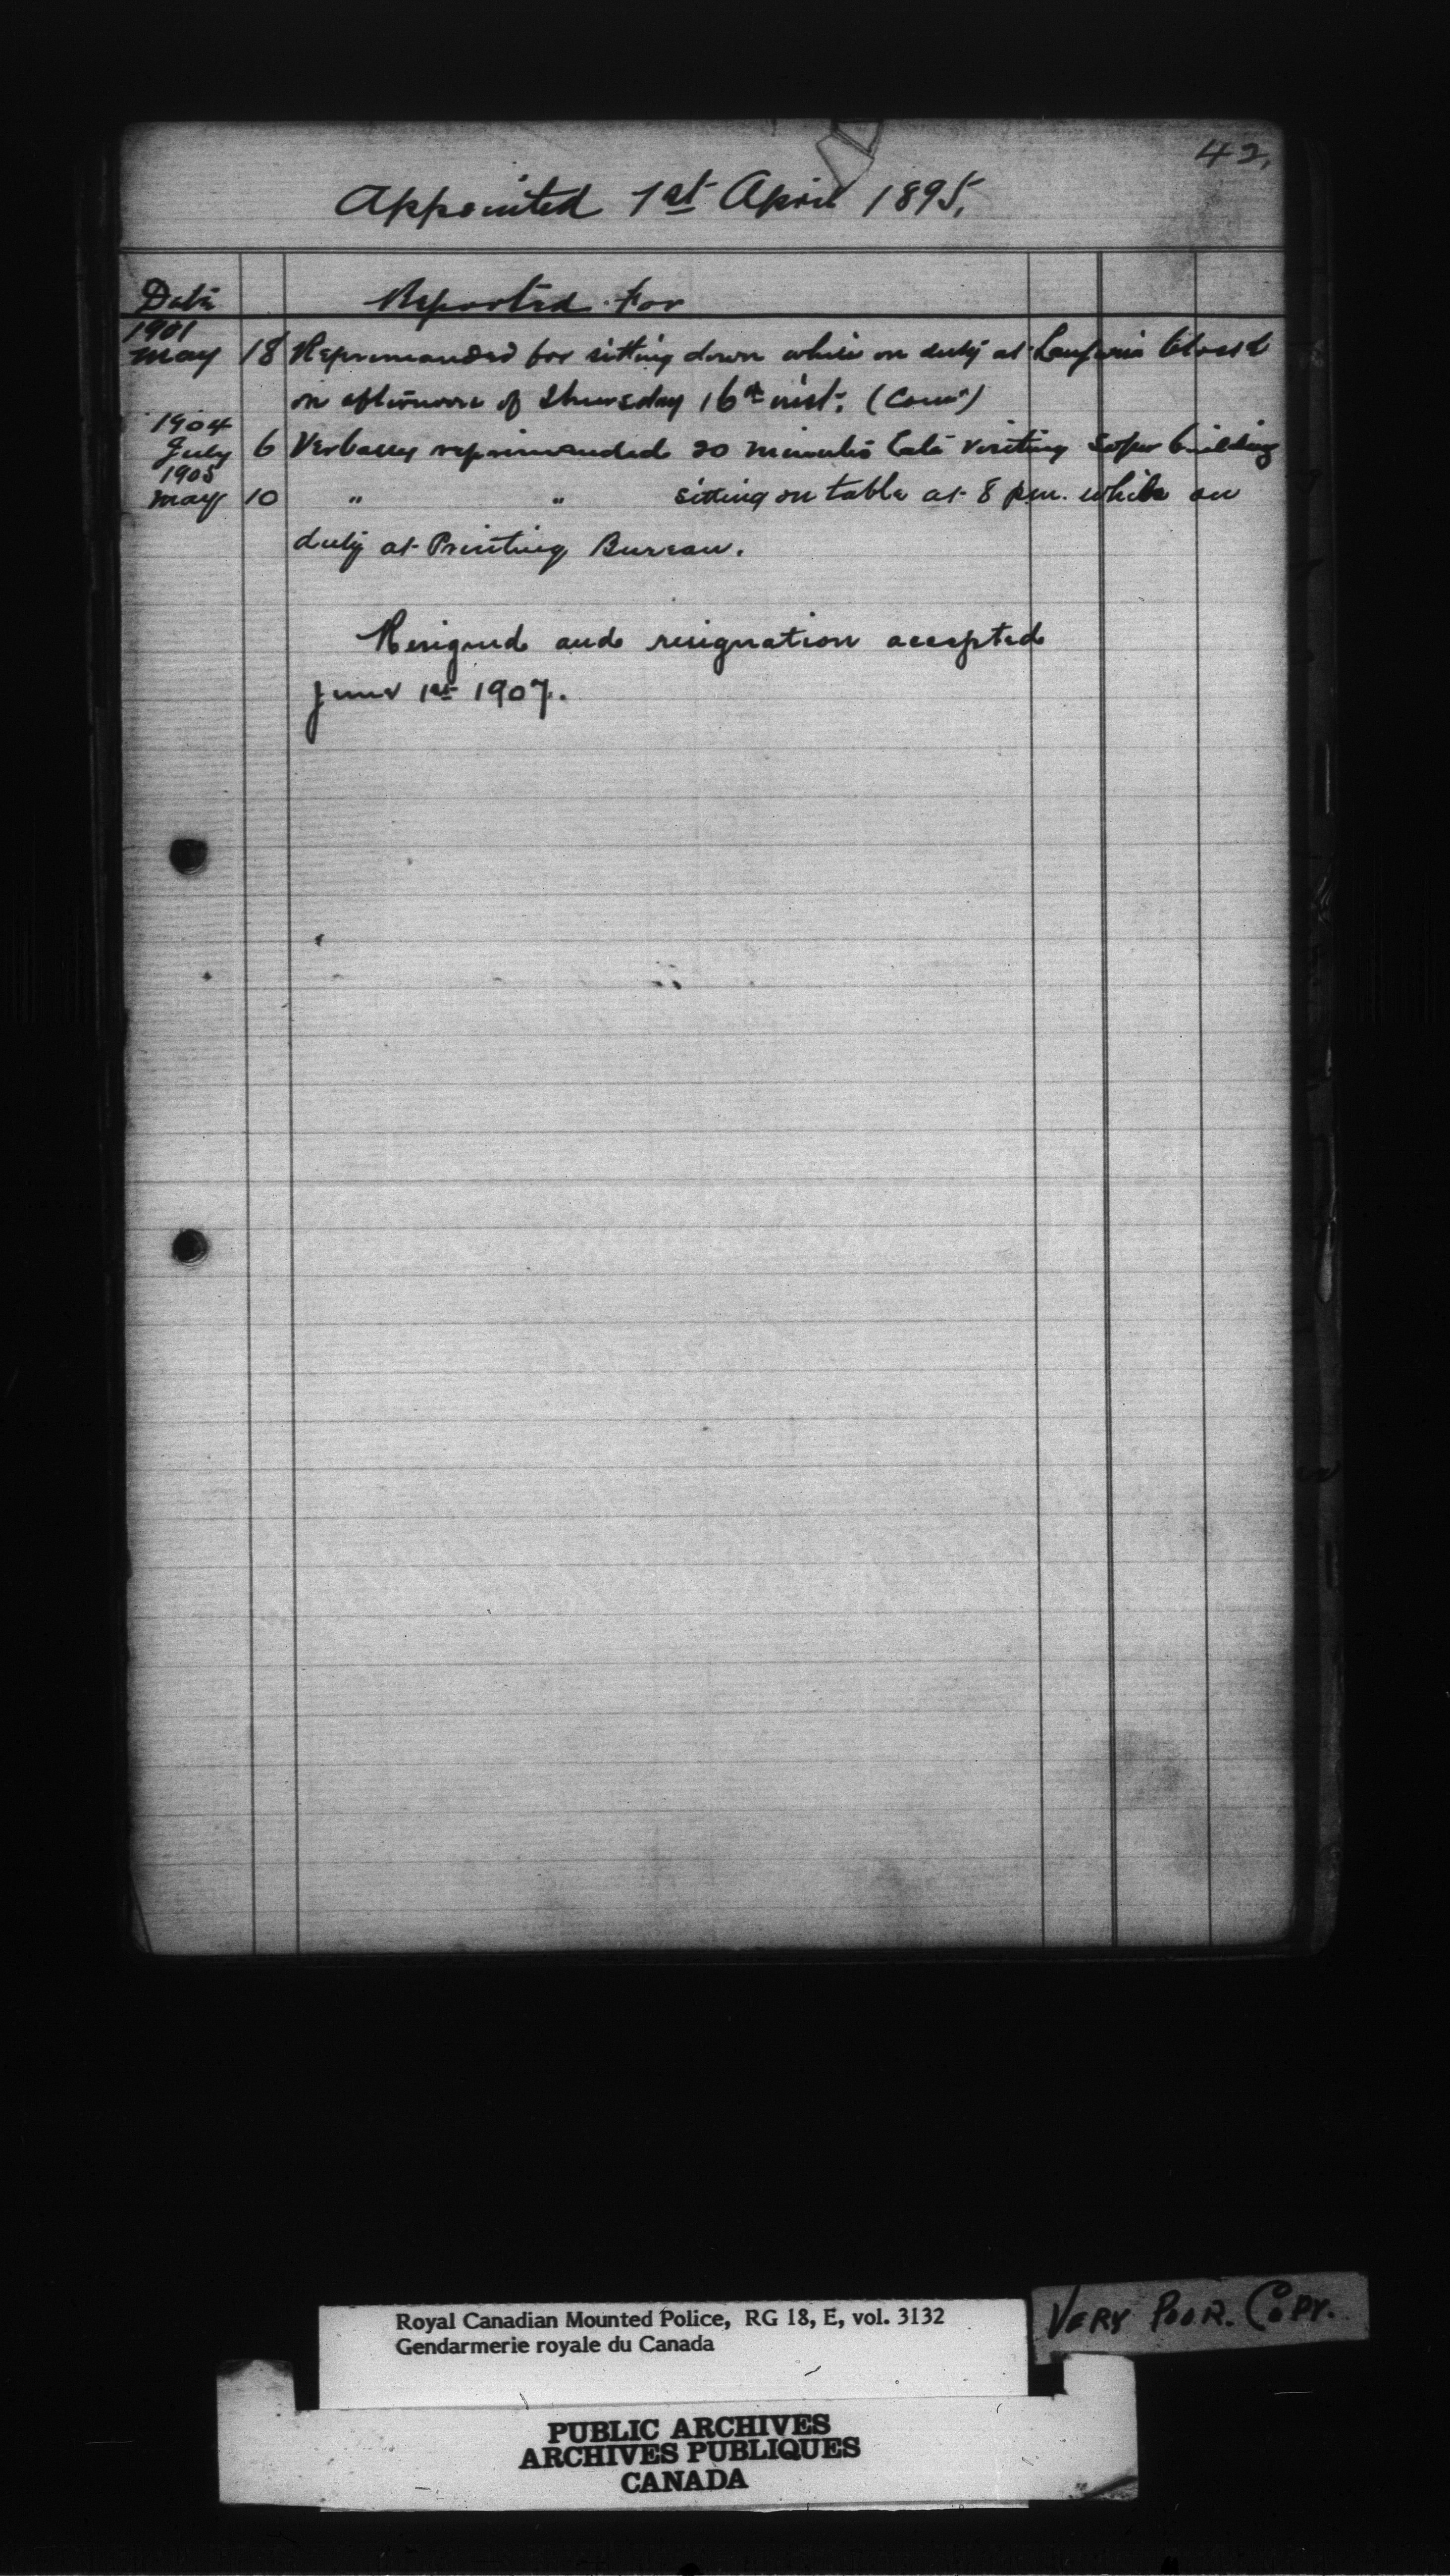 42.
Appointed 1st April 1895.
Date Reported For
1901
May 18 Reprimanded for sitting down while on duty at Langevin Block
on afternoon of Thursday 16th inst. (Comr)
1904
July 6 Verbally reprimanded 20 minutes late visiting Soper building
1905
May 10 " " sitting on table at 8 p.m. while on
duty at Printing Bureau.
Resigned and resignation accepted
June 1st 1907.
Royal Canadian Mounted Police, RG 18, E, vol. 3132
Gendarmerie royale du Canada
VERY POOR. COPY.
PUBLIC ARCHIVES
ARCHIVES PUBLIQUES
CANADA